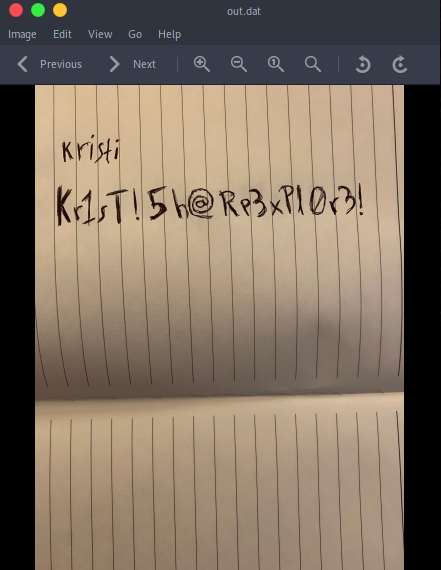 out.dat
Image Edit View Go Help
Previous Next
Kristi
Kr1sT!5h@Rp3xPl0r3!